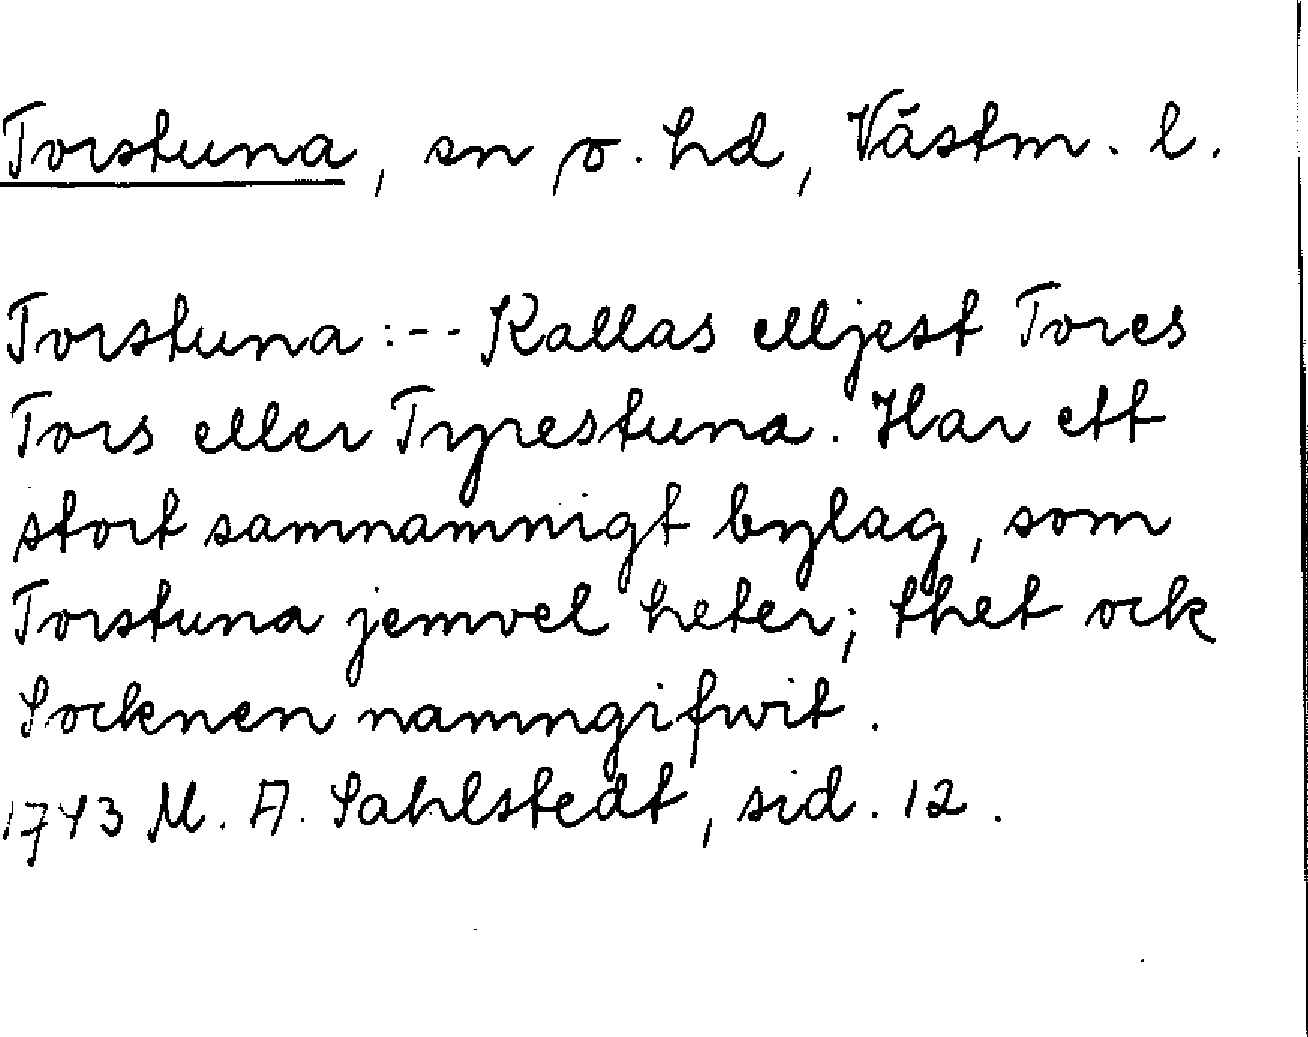 Torstuna, sn o. hd, Västm. l.
Torstuna:-- Kallas elljest Tores
Tors eller Tyrestuna. Har ett
stort samnamnigt bylag, som
Torstuna jemvel heter; thet ock
Socknen namngifwit.
1743 M. A. Sahlstedt, sid. 12.